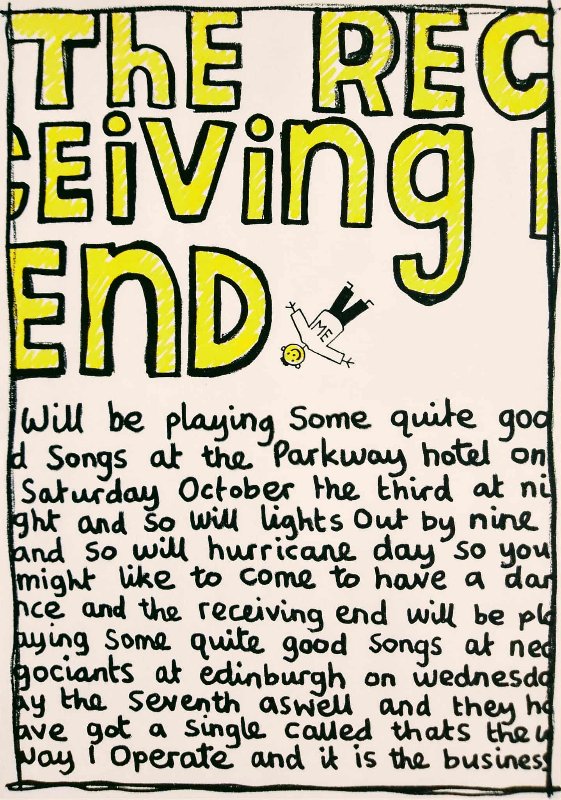 THE REC
CEiVing
END
ME
Will be playing Some quite goo
d Songs at the Parkway hotel on
Saturday October the third at ni
ght and so will lights Out by nine
and So will hurricane day so you
might like to come to have a dan
nce and the receiving end will be pla
aying Some quite good Songs at neg
gociants at edinburgh on wednesda
ay the Seventh aswell and they ha
ave got a Single called thats the w
way I Operate and it is the business